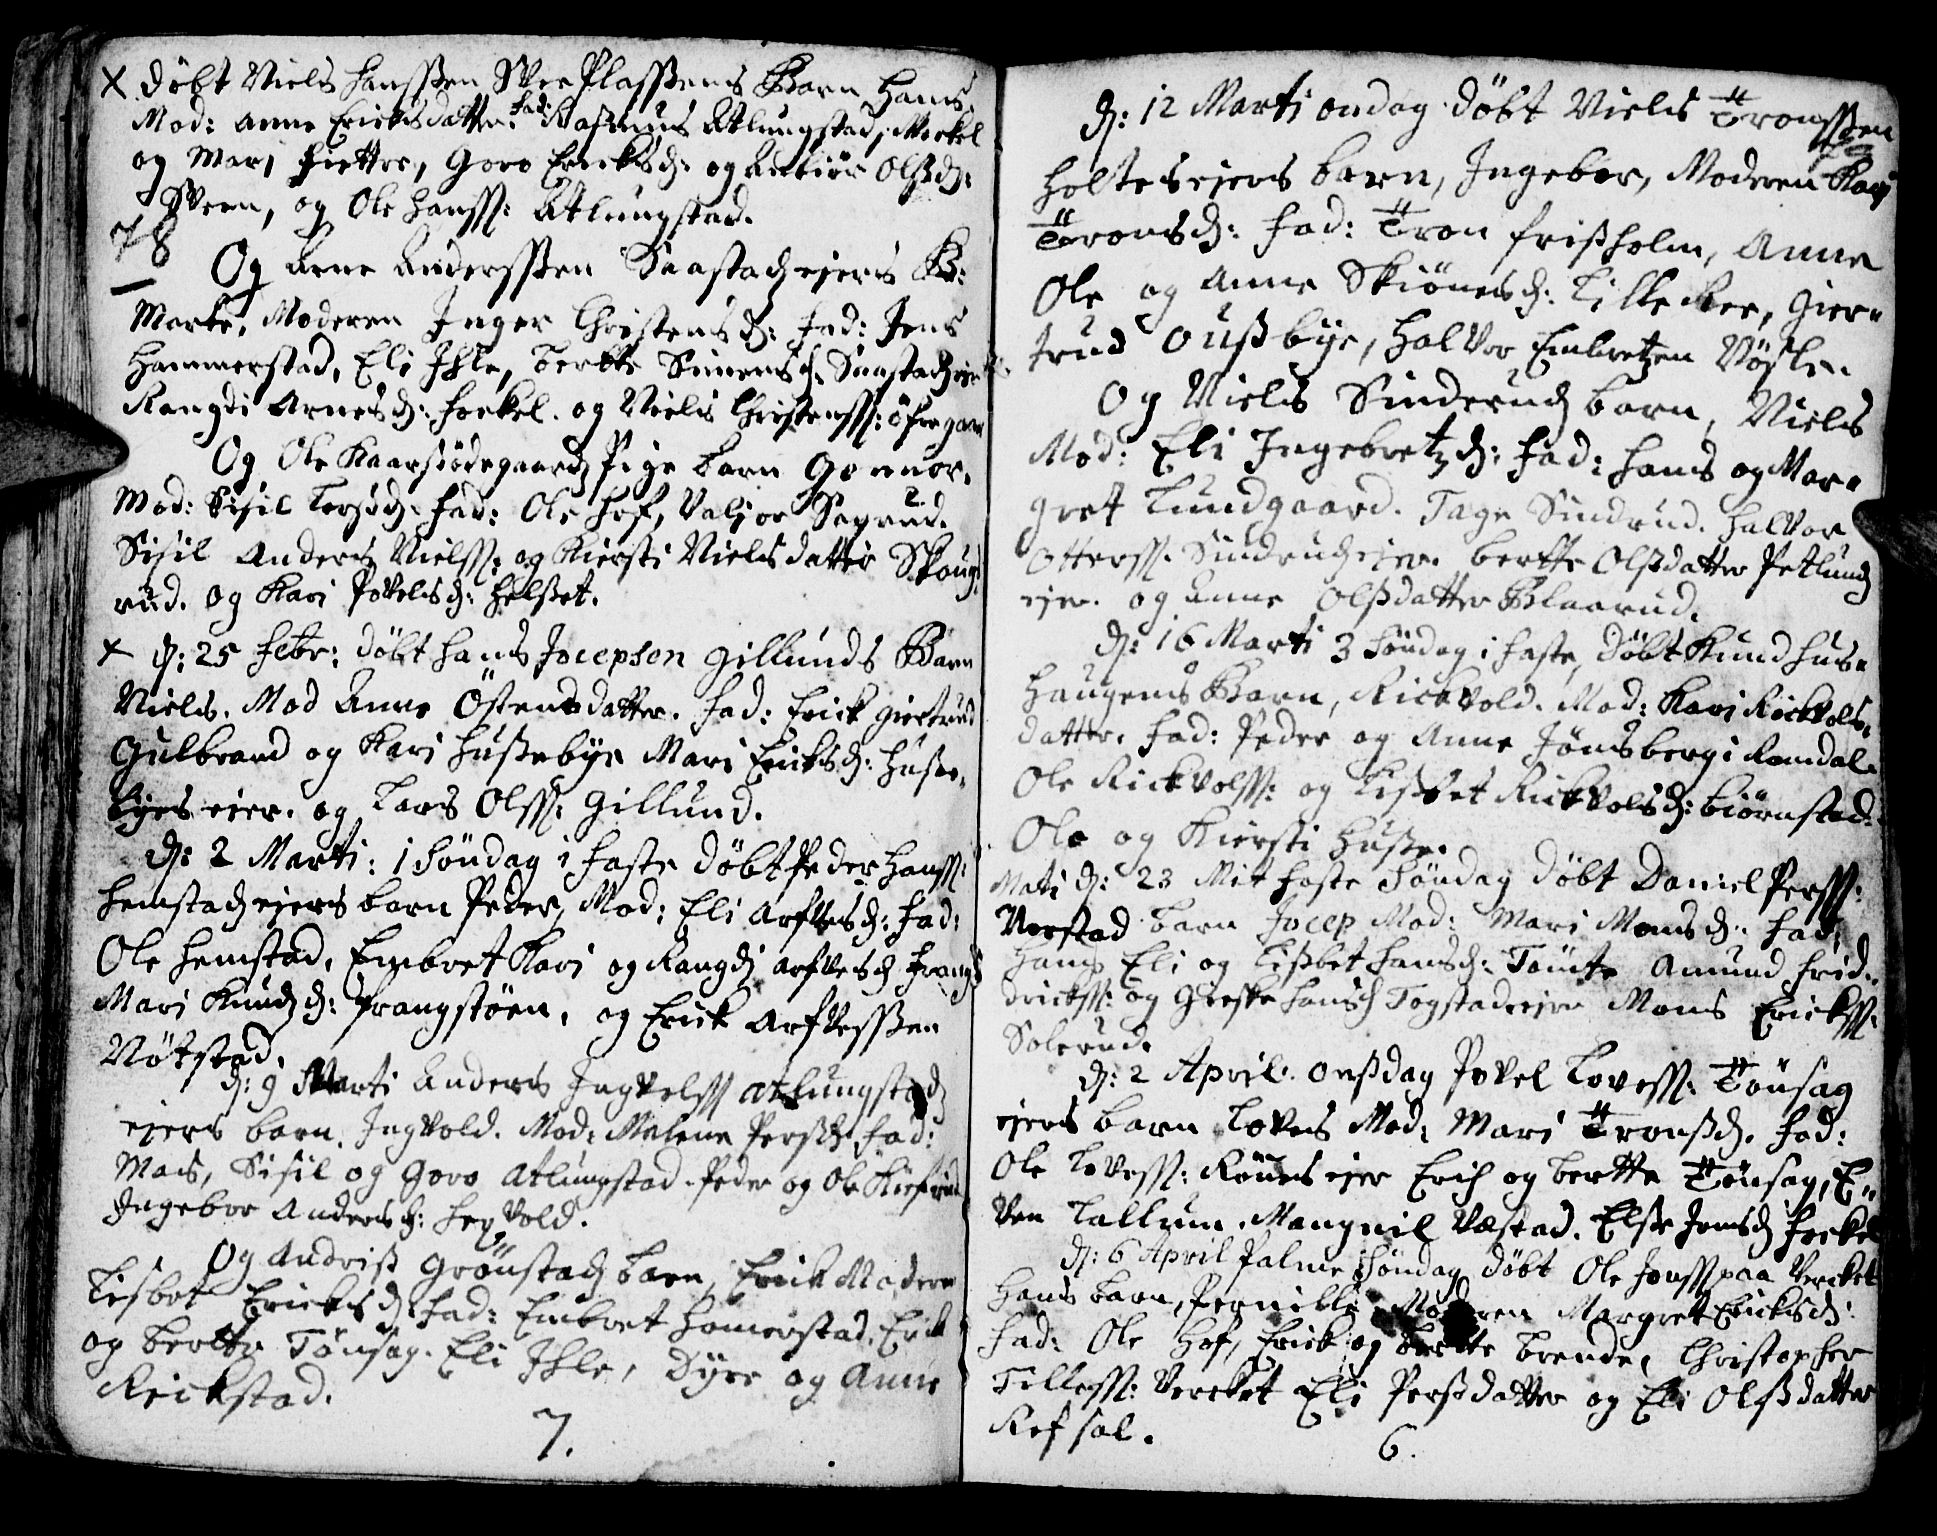 X Döbt Niels Hanssen Svee Plassens Barn Hans.
Mod: Anne Ericksdatter. Fad: Rasmus Atlungstad, Merkel
og Mari Hiettre, Goro Ericksd: og Anbiör Olsd:
Sveen, og Ole Hanss: Atlungstad.
78
Og Arne Anderssen Saastad ejers B:
Marte. Moderen Inger Christensd: Fad: Jens
Hammerstad, Eli Ihle, Berthe Simensd: Saastad ejer
Rangdi Arnesd: Horkel. og Niels Christenss: öfregaar
Og Ole Kaarsödegaard Pige barn Gounor.
Mod: Sisil Torsd: Fad: Ole Hof, Valjor Sagrud.
Sisil Anders Nielss: og Kiersti Nielsdatter Skoug
rud. og Kari Povelsd: Helset.
X D: 25 Febr: döbt Hans Jocepsen Gillunds Barn
Niels. Mod Anne Östensdatter. Fad: Erick Giertrud
Gulbrand og Kari Hussebye Mari Ericksd: Husse,
byes ejer. og Lars Olss: Gillund.
D: 2 Marti: 1 Söndag i Faste döbt Peder Hanss:
Hemstad ejers barn Peder, Mod: Eli Arfvesd: Fad:
Ole Hemstad, Embret Kari og Rangdi Arfvesd Frangs
Mari Knudsd: Frangstöen, og Erick Arfvessen
Nötstad.
D: 9 Marti Anders Ingvelss Atlungstad
ejers barn. Ingvold. Mod: Malene Persd: Fad:
Mads, Sisil og Goro Atlungstad. Peder og Ole Kiefrud
Ingebor Andersd: Hegvold.
Og Andriss Grönstad barn, Erick Moderen
Lisbet Ericksd: Fad: Embret Homerstad. Erik
og Berthe Tönsag. Eli Ihle, Dyre og Anne
Reickstad.
7.
D: 12 Marti onsdag döbt Niels Tronssen
Holtes ejers barn, Ingebor, Moderen Kari
Tronsd: Fad: Tron Frissholm, Anne
Ole og Anne Skiönesd: Lille Ree, Gier-
trud Oussbye, Halvor Embretzen Vösle.
Og Niels Sinderud barn, Niels
Mod: Eli Ingebretzd: Fad: Hans og Mar-
gret Lundgaard. Tage Sindrud. Halvor
Otterss. Sindrud ejer. berthe Olsdatter Petlund
ejer. og Anne Olssdatter Blaarud.
D: 16 Marti 3 Söndag i Faste, döbt Knud Hus-
haugens Barn, Rickvold. Mod: Kari Rickvols.
datter. Fad: Peder og Anne Jönsberg i Romdal.
Ole Rickvolss: og Lisbet Rickvolsd: biörnstad.
Ole og Kiersti Husse.
Mati D: 23 Mit faste Söndag döbt Daniel Perss:
Verstad barn Jocep Mod: Mari Monsd: Fad:
Hans Eli og Lissbet Hansd: Tönte Amund Frid-
dricks: og Greske Hansd Togstad ejer Mons Erickss:
Solerud.
D: 2 April. Onssdag Povel Lovess: Tönsag
ejers barn Loves Mod: Mari Tronsd. Fad:
Ole Lovess: Rönes ejer Erich og berthe Tönsag, E-
ven Lallum. Mangnil Væstad. Else Jensd Horkel
D: 6 April Palme Söndag döbt Ole Jonss paa Verckel
Hans barn, Pernille, Moderen Margret Ericksd:
Fad: Ole Hof, Erick og berte brende, Christopher
Tilless: Vercket Eli Perssdatter og Eli Olssdatter
Refsal.
6.